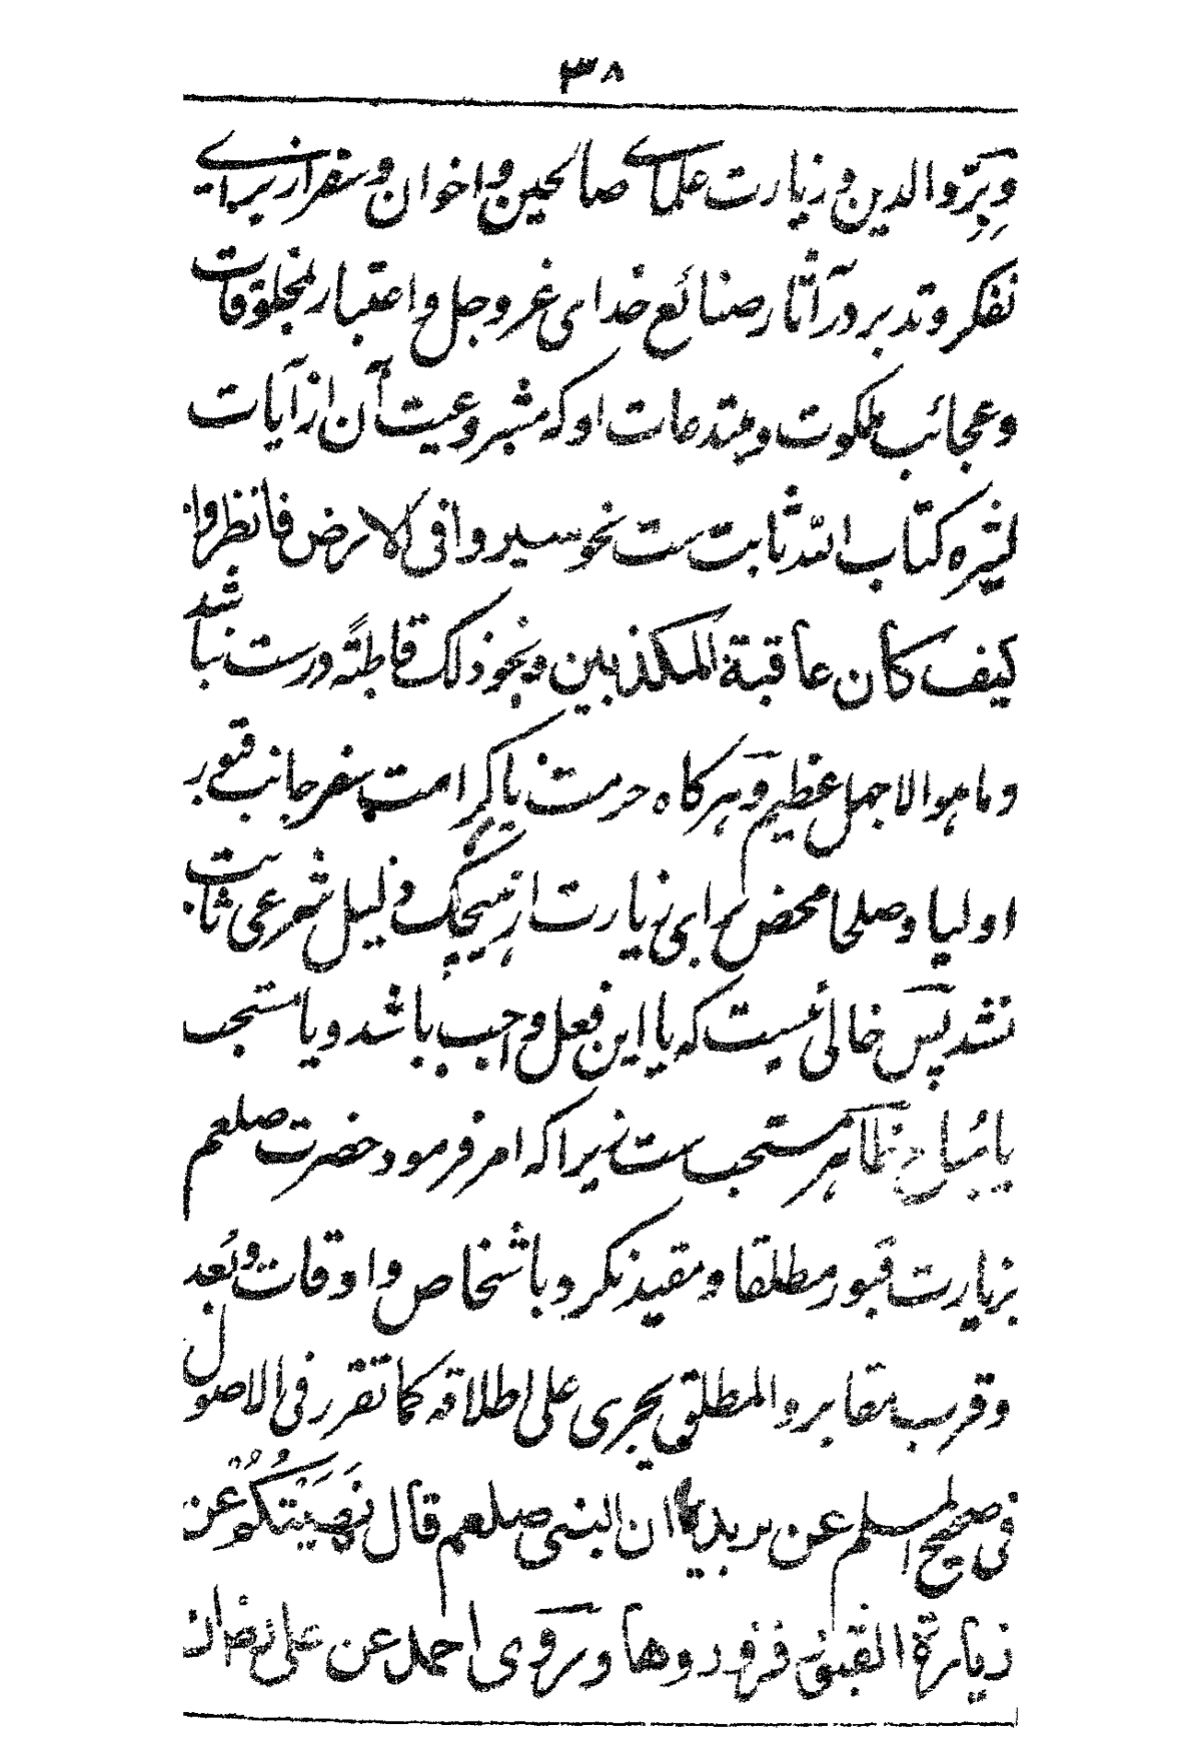 ۳۸
وبِرّ والدین و زیارت علمای صالحین و اخوان و سفر از برای
تفکر و تدبر در آثار صنائع خدای عز و جل و اعتبار بمخلوقات
و عجائب ملکوت و مبتدعات او که مشروعیت آن از آیات
کثیره کتاب الله ثابت ست نحو سیروا فی الارض فانظروا
کیف کان عاقبة المکذبین و نحو ذلک قاطبةً درست نباشد
و ما هو الا جهل عظیم و هرگاه حرمت یا کرامت سفر جانب قبور
اولیا و صلحا محض برای زیارت از هیچیک دلیل شرعی ثابت
نشد پس خالی نیست که یا این فعل واجب باشد و یا مستحب
یا مباح ظاهر مستحب ست زیرا که امر فرمود حضرت صلعم
بزیارت قبور مطلقا و مقید نکرد باشخاص و اوقات و بُعد
و قرب مقابر و المطلق یجری علی اطلاقه کما تقرر فی الاصول
فی صحیح المسلم عن بریدة ان النبی صلعم قال نَهَیْتُکُمْ عن
زیارة القبور فزوروها و روی احمد عن علی رض ان